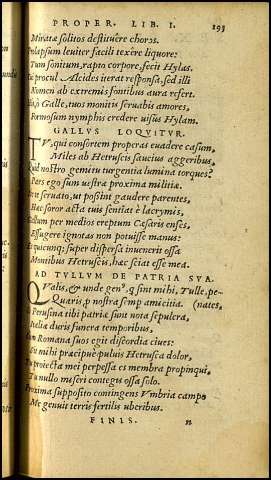 PROPER. LIB. I. 193
Miratæ solitos destituêre choros.
Prolapsum leuiter facili texêre liquore:
Tum sonitum, rapto corpore, fecit Hylas.
procul Alcides iterat responsa, sed illi
Nomen ab extremis fontibus aura refert.
ô Galle, tuos monitis seruabis amores,
Formosum nymphis credere uisus Hylam.
GALLVS LOQVITVR.
TV, qui consortem properas euadere casum,
Miles ab Hetruscis saucius aggeribus,
Quid nostro gemitu turgentia lumina torques?
Pars ego sum uestræ proxima militiæ.
seruato, ut possint gaudere parentes,
Hæc soror acta tuis sentiat è lacrymis,
Gallum per medios ereptum Cæsaris enses,
Effugere ignotas non potuisse manus:
Et quicunq; super dispersa inuenerit ossa
Montibus Hetruscis, hæc sciat esse mea.
AD TVLLVM DE PATRIA SVA.
QValis, & unde genꝰ, q sint mihi, Tulle, pe-
Quæris, p nostra semp amicitia. (nates,
Perusina tibi patriæ sunt nota sepulcra,
Italiæ duris funera temporibus,
Cum Romana suos egit discordia ciues:
mihi præcipuè puluis Hetrusca dolor,
Tu proiecta mei perpessa es membra propinqui,
Tu nullo miseri contegis ossa solo.
Proxima supposito contingens Vmbria campo
Me genuit terris fertilis uberibus.
FINIS. n